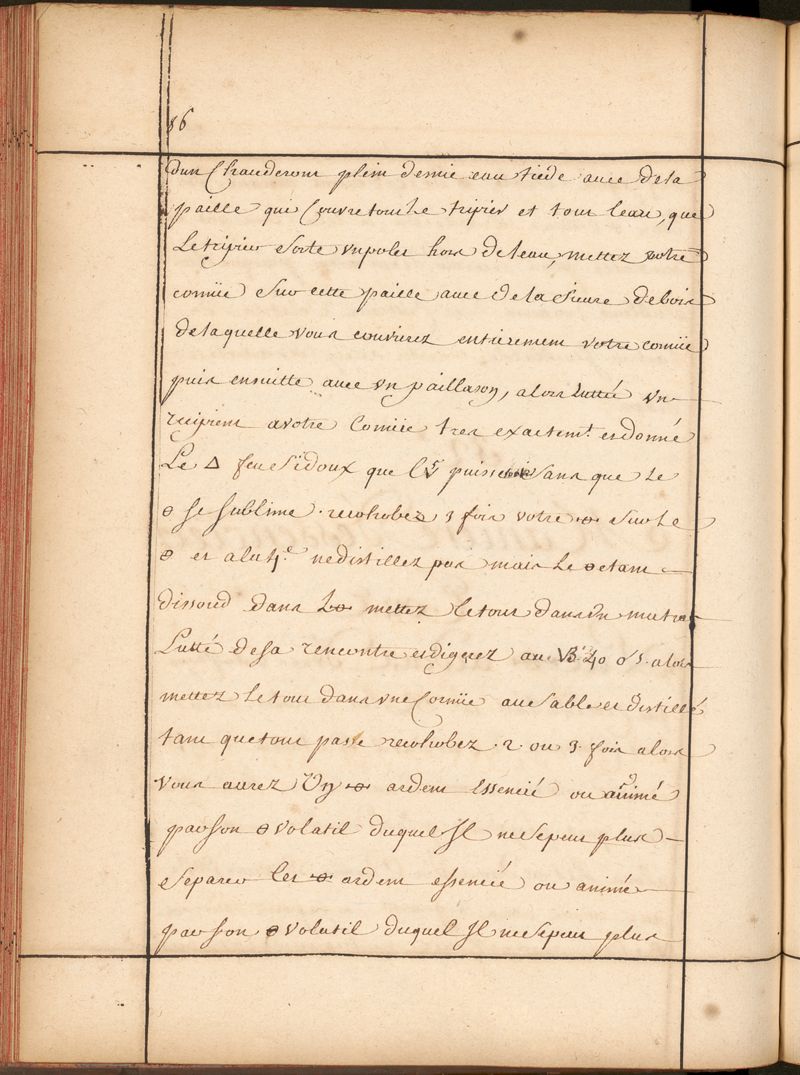 86
dun Chauderom plein demie eau tiede avec dela
paille qui Couvre tout Le tripier et tout leau, que
Le tripier sorte un poles hors de leau, mettez votre
cornüe sur cette paille avec de la sieure de bois
de laquelle vous couvrirez entierement votre cornüe
puis ensuitte avec un paillason, alors Luttéé un
recipient a votre Cornüe tres exactemt. et donné
Le △ feu si doux que puisse sans que Le
⊖ se sublime. recohobez 3 fois votre sur Le
⊖ et a la 4e. ne distillez pas mais Le ⊖ etant
dissoud dans L mettez le tout dans un matras
Lutté de sa rencontre et digerez au 40 alors
mettez Le tout dans une Cornüe au sable et distillé
tant que tout passe recohobez. 2 ou 3 fois alors
vous aurez Un ardent Essencié ou animé
par son ⊖ volatil duquel Il ne se peut plus
separer Cet ardent essencié ou animé
par son ⊖ volatil duquel Il ne se peut plus